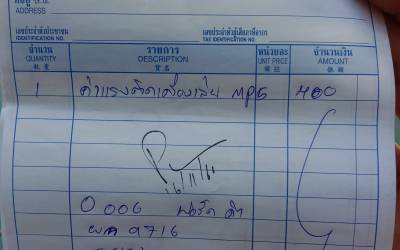 ADDRESS
เลขประจำตัวประชาชน เลขประจำตัวผู้เสียภาษีอากร
IDENTIFICATION NO. TAX IDENTIFICATION NO.
จำนวน รายการ หน่วยละ จำนวนเงิน
QUANTITY DESCRIPTION UNIT PRICE AMOUNT
数量 貨名 單價 銀額
1 ค่าแรงติดเครื่องเล่น MP5 400
16/11/61
006 ฟอร์ด ดำ
ผค 9716